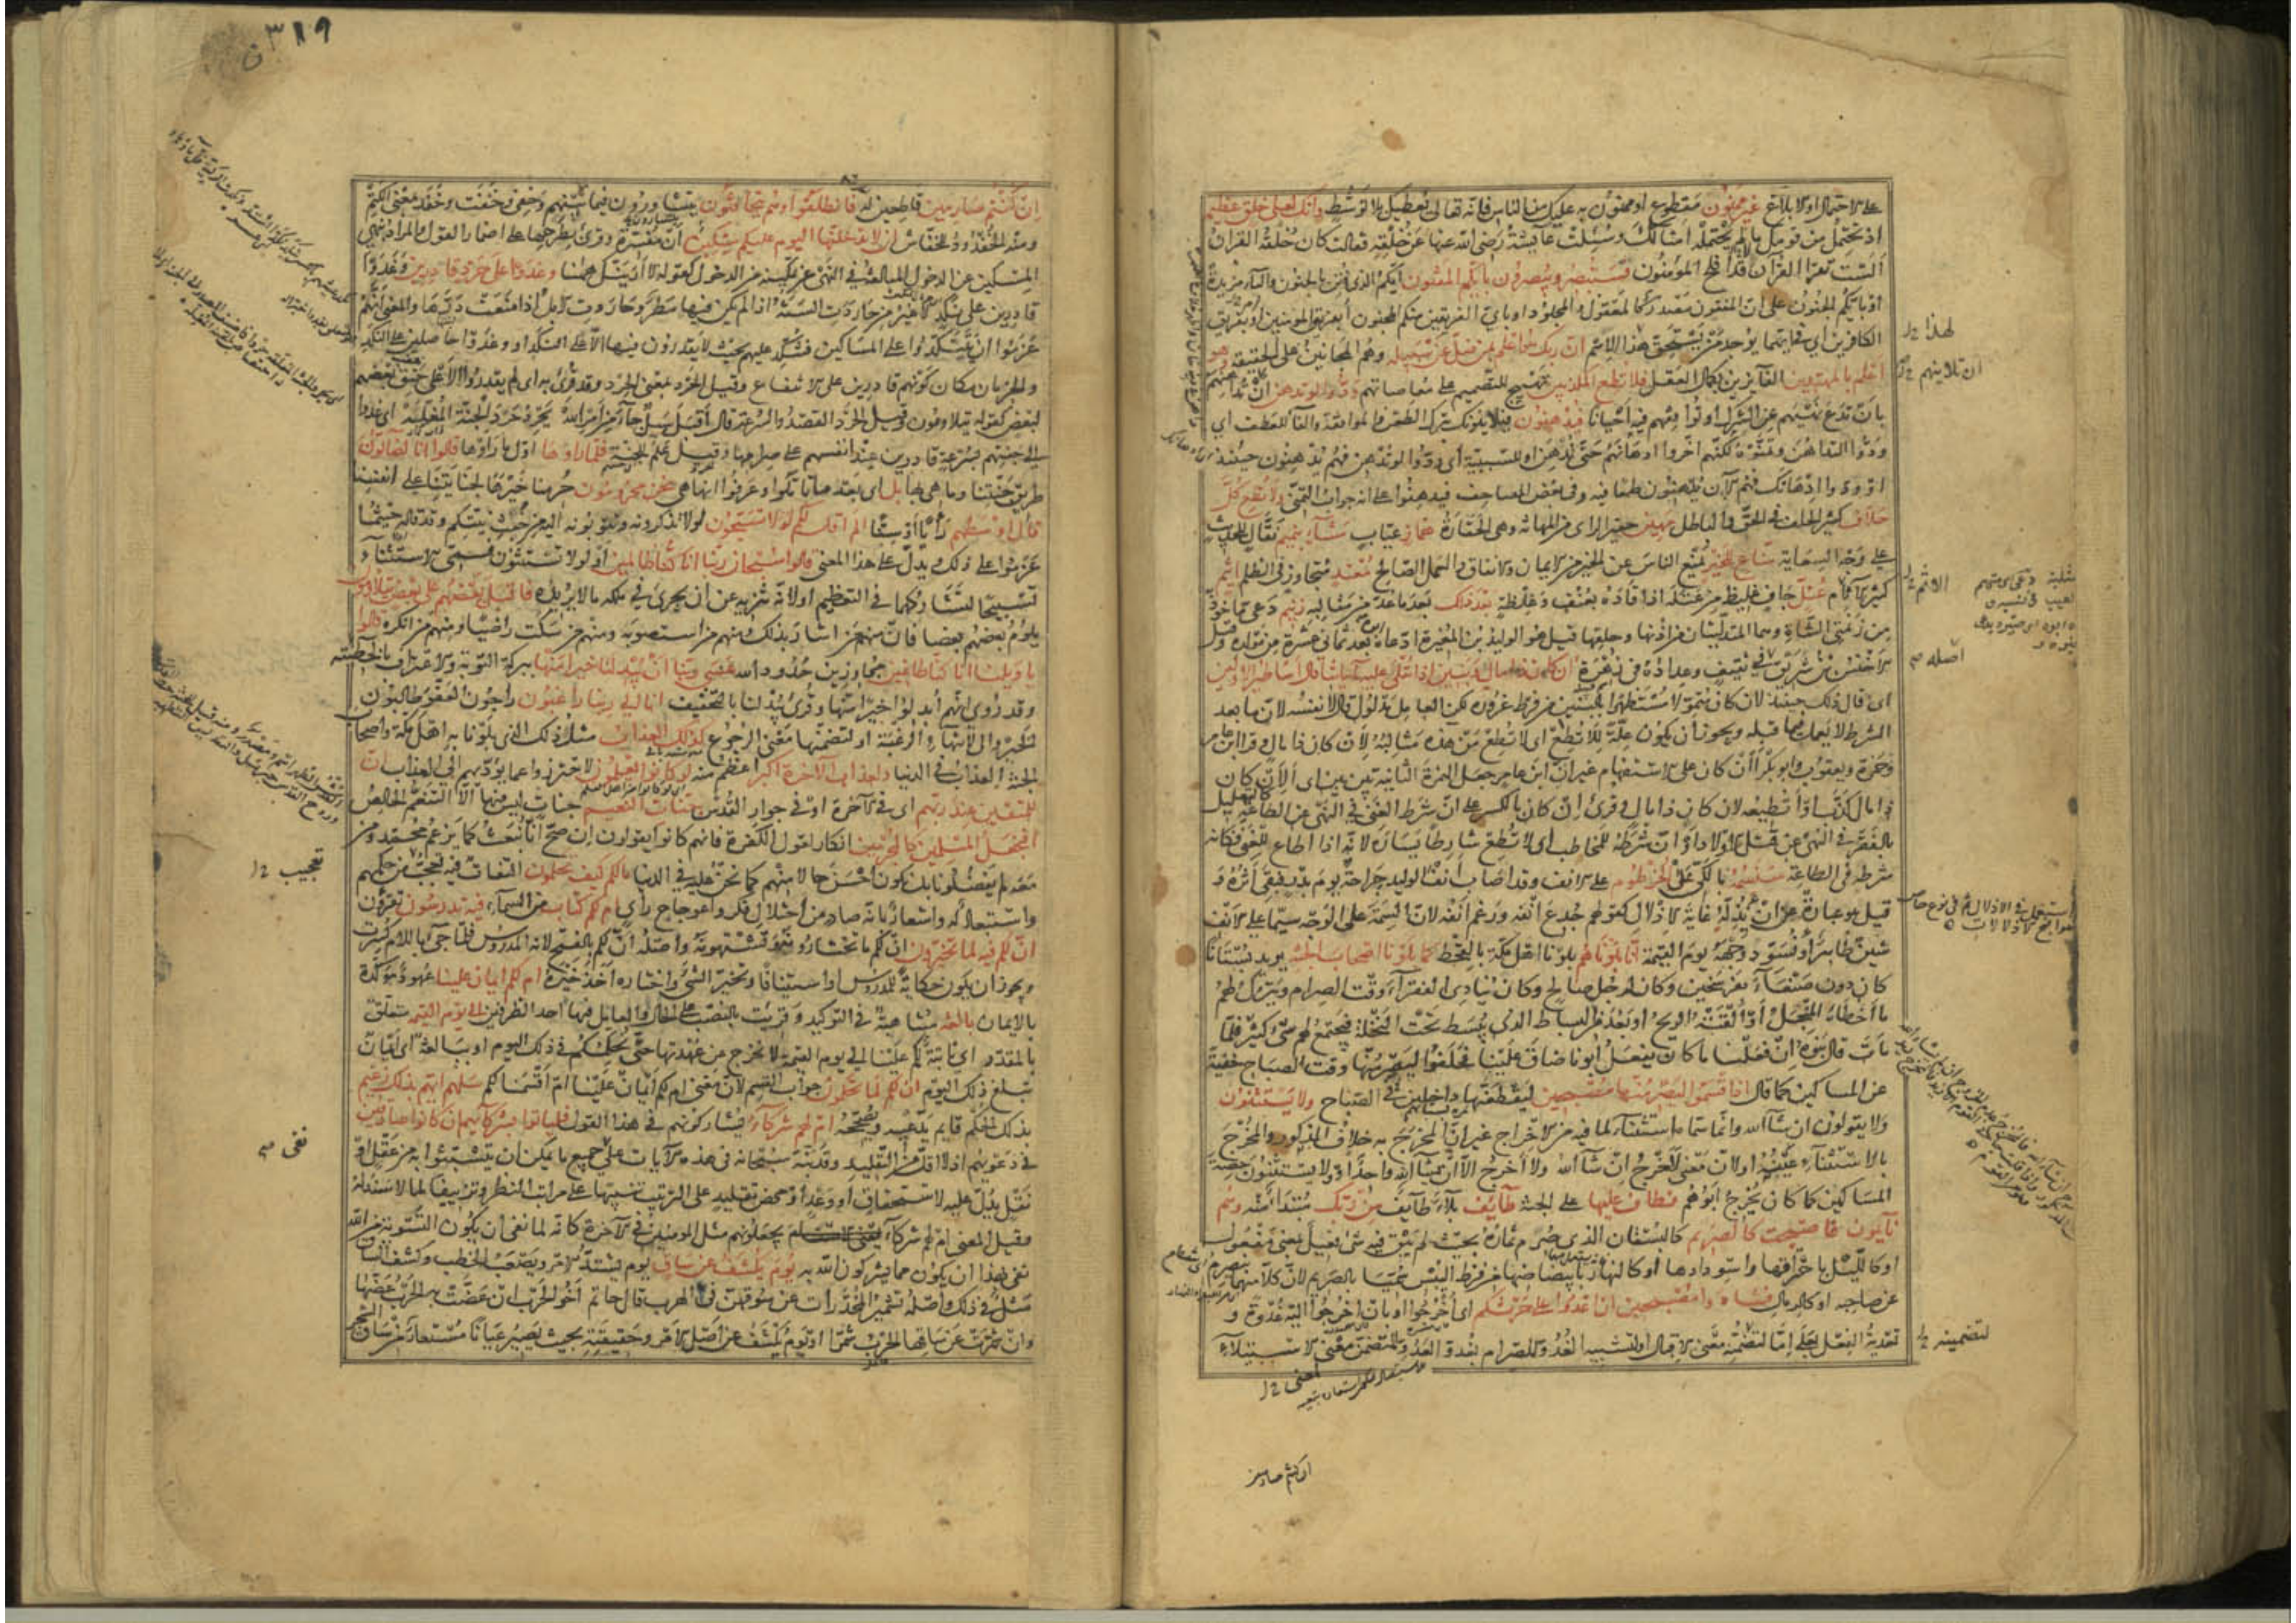 على الاحتمال او الابلاغ غير ممنون مقطوع او ممنون به عليك من الناس فانه تعالى يعطيك بلا توسط وانك لعلى خلق عظيم
اذ تحتمل من قومك ما لم يحتمله امثالك وسئلت عايشة رضى الله عنها عن خلقه فقالت كان خلقه القران
الست تقرا القران قد افلح المؤمنون فستبصر ويبصرون بايكم المفتون ايكم الذى فتن بالجنون والباء مزيدة
او بايكم الجنون على ان المفتون مصدر كالمعقول والمجلود او باى الفريقين منكم المجنون أبفريق المومنين او بفريق
الكافرين اى فى ايهما يوجد من يستحق هذا الاسم ان ربك هو اعلم بمن ضل عن سبيله وهم المجانين على الحقيقة وهو
اعلم بالمهتدين الفائزين بكمال العقل فلا تطع المكذبين تهييج للتصميم على معاصاتهم ودوا لو تدهن ان تداهنهم
بان تدع نهيهم عن الشرك او توافقهم فيه احيانا فيدهنون فيلاينونك بترك الطعن والموافقة والفاء للعطف اى
ودوا التداهن وتمنوه لكنهم اخروا ادهانهم حتى تدهن او للسببية أى ودوا لو تدهن فهم يدهنون حينئذ
او ودوا ادهانك فهم الان يدهنون طمعا فيه وفى بعض المصاحف فيدهنوا على انه جواب التمنى ولا تطع كل
حلاف كثير الحلف فى الحق والباطل مهين حقير الراى من المهانة وهى الحقارة هماز عياب مشاء بنميم نقال للحديث
على وجه السعاية مناع للخير يمنع الناس عن الخير من الايمان والانفاق والعمل الصالح معتد متجاوز فى الظلم اثيم
كثير الاثام عتل جاف غليظ من عتله اذا قاده بعنف وغلظة بعد ذلك بعد ما عد من مثالبه زنيم دعى ماخوذ
من زنمتى الشاة وهما المتدليتان من اذنها وحلقها قيل هو الوليد بن المغيرة ادعاه ابوه بعد ثمانى عشرة من مولده وقيل
الاخنس بن شريق فى ثقيف وعداده فى زهرة ان كان ذا مال وبنين اذا تتلى عليه آياتنا قال اساطير الاولين
اى قال ذلك حينئذ لان كان متمولا مستظهرا بالبنين من فرط غروره لكن العامل مدلول قال لا نفسه لان ما بعد
الشرط لا يعمل فيما قبله ويجوز أن يكون علة للا تطع اى لا تطع من هذه مثالبه لان كان ذا مال وقرا ابن عامر
وحمزة ويعقوب وابو بكر أأن كان على الاستفهام غير ان ابن عامر جعل الهمزة الثانية بين بين اى ألان كان
ذا مال كذب او أ تطيعه لان كان ذا مال وقرئ ان كان بالكسر على ان شرط الغنى فى النهى عن الطاعة كالتعليل
بالفقر فى النهى عن قتل الاولاد او ان شرطه للمخاطب أى لا تطع شارطا يساره لانه اذا اطاع للغنى فكانه
شرطه فى الطاعة سنسمه بالكى على الخرطوم على الانف وقد اصاب أنف الوليد جراحة يوم بدر فبقى أثره و
قيل هو عبارة عن ان يذله غاية الاذلال كقولهم جدع انفه ورغم أنفه لان السمة على الوجه سيما على الانف
شين ظاهر أو نسود وجهه يوم القيمة انا بلوناهم بلونا اهل مكة بالقحط كما بلونا اصحاب الجنة يريد بستانا
كان دون صنعاء بفرسخين وكان لرجل صالح وكان ينادى الفقرآء وقت الصرام ويترك لهم
ما أخطاه المنجل أو القته الريح او بعد من البساط الذى يبسط تحت النخلة فيجتمع لهم شئ كثير فلما
مات قال بنوه ان فعلنا ما كان يفعل أبونا ضاق علينا فحلفوا ليصرمنها وقت الصباح خفية
عن المساكين كما قال اذ اقسموا ليصرمنها مصبحين ليقطعنها داخلين فى الصباح ولا يستثنون
ولا يقولون ان شاء الله وانما سماه استثناء لما فيه من الاخراج غير ان المخرج به خلاف المذكور والمخرج
بالاستثناء عينه اولان معنى لا أخرج ان شاء الله ولا أخرج الا ان يشآ الله واحدا ولا يستثنون حصة
المساكين كما كان يخرج ابوهم فطاف عليها على الجنة طائف بلاء طايف من ربك مبتدأ منه وهم
نايمون فاصبحت كالصريم كالبستان الذى صرم ثماره بحيث لم يبق فيه شئ فعيل بمعنى مفعول
او كالليل باحتراقها واسودادها او كالنهار بابيضاضها من فرط اليبس سميا بالصريم لان كلا منهما ينصرم
عن صاحبه او كالرمال فتنادوا مصبحين ان اغدوا على حرثكم اى اخرجوا او بان اخرجوا اليه غدوة و
تعدية الفعل بعلى اما لتضمنه معنى الاقبال او لتشبيه الغدو للصرام بغدو العدو المتضمن معنى الاستيلاء
لهذا
ان تلاينهم
الاثم
اصله
لتضمينه
ان كنتم صارمين قاطعين له فانطلقوا وهم يتخافتون يتشاورون فيما بينهم وخفى وخفت وخفد بمعنى الكتم
ومنه الخفدود للخفاش ان لا يدخلنها اليوم عليكم مسكين أن مفسرة وقرئ بطرحها على اضمار القول والمراد بنهى
المسكين عن الدخول المبالغة فى النهى عن تمكينه من الدخول كقوله لا أرينك ههنا وغدوا على حرد قادرين وغدوا
قادرين على نكد لا غير من حاردت السنة اذا لم يكن فيها مطر وحاردت الابل اذا منعت درها والمعنى أنهم
عزموا ان يتنكدوا على المساكين فنكد عليهم بحيث لا يقدرون فيها الا على النكد او وغدوا حاصلين على النكد
والحرمان مكان كونهم قادرين على الانتفاع وقيل الحرد بمعنى الحرد وقد قرئ به اى لم يقدروا الا على حنق بعضهم
لبعض كقوله يتلاومون وقيل الحرد القصد والسرعة قال أقبل سيل جاء من امر الله يحرد حرد الجنة المغلة اى غدوا
الى جنتهم بسرعة قادرين عند انفسهم على صرامها وقيل علم للجنة فلما راوها اول ما راوها قالوا انا لضالون
طريق جنتنا وما هى بها بل اى بعد ما تاملوا وعرفوا انها هى نحن محرومون حرمنا خيرها لجنايتنا على انفسنا
قال اوسطهم رأيا او سنا الم اقل لكم لولا تسبحون لولا تذكرونه وتتوبون اليه من خبث نيتكم وقد قاله حيثما
عزموا على ذلك ويدل على هذا المعنى قالوا سبحان ربنا انا كنا ظالمين أو لولا تستثنون فسمى الاستثناء
تسبيحا لتشاركهما فى التعظيم او لانه تنزيه عن ان يجرى فى ملكه ما لا يريده فاقبل بعضهم على بعض يتلاومون
يلوم بعضهم بعضا فان منهم من اشار بذلك ومنهم من استصوبه ومنهم من سكت راضيا ومنهم من انكره قالوا
يا ويلنا انا كنا طاغين متجاوزين حدود الله عسى ربنا أن يبدلنا خيرا منها ببركة التوبة والاعتراف بالخطيئة
وقد روى انهم أبدلوا خيرا منها وقرئ يبدلنا بالتخفيف انا الى ربنا راغبون راجون العفو طالبون
الخير والى لانتهاء الرغبة او لتضمنها معنى الرجوع كذلك العذاب مثل ذلك الذى بلونا به اهل مكة واصحاب
الجنة العذاب فى الدنيا ولعذاب الآخرة اكبر اعظم منه لو كانوا يعلمون لاحترزوا عما يؤديهم الى العذاب ان
للمتقين عند ربهم اى فى الآخرة او فى جوار القدس جنات النعيم جنات ليس فيها الا التنعم الخالص
أفنجعل المسلمين كالمجرمين انكار لقول الكفرة فانهم كانوا يقولون ان صح أنا نبعث كما يزعم محمد ومن
معه لم يفضلونا بل نكون احسن حالا منهم كما نحن عليه فى الدنيا مالكم كيف تحكمون التفات فيه تعجب من حكمهم
واستبعاد له واشعار بانه صادر من اختلال فكر واعوجاج راى ام لكم كتاب من السمآء فيه تدرسون تقرؤن
ان لكم فيه لما تخيرون ان لكم ما تختارونه وتشتهونه وأصله أن لكم بالفتح لانه المدروس فلما جئ باللام كسرت
ويجوز ان يكون حكاية للمدروس او استينافا وتخير الشئ واختاره أخذ خيره ام لكم ايمان علينا عهود مؤكدة
بالايمان بالغة متناهية فى التوكيد وقريت بالنصب على الحال والعامل فيها احد الظرفين الى يوم القيمة متعلق
بالمقدر اى ثابتة لكم علينا الى يوم القيمة لا نخرج عن عهدتها حتى نحكمكم فى ذلك اليوم او ببالغة اى ايمان
تبلغ ذلك اليوم ان لكم لما تحكمون جواب القسم لان معنى ام لكم أيمان علينا ام اقسمنا لكم سلهم ايهم بذلك زعيم
بذلك الحكم قايم يدعيه ويصححه ام لهم شركآء يشاركونهم فى هذا القول فلياتوا بشركآئهم ان كانوا صادقين
فى دعويهم اذ لا اقل من التقليد وقد نبه سبحانه فى هذه الآيات على جميع ما يمكن ان يتشبثوا به من عقل او
نقل يدل عليه لاستحقاق او وعد او محض تقليد على الترتيب تنبيها على مراتب النظر وتزييفا لما لا سند له
وقيل المعنى ام لهم شركآء يجعلونهم مثل المومنين فى الآخرة كانه لما نفى ان يكون التسوية من الله
نفى بهذا ان يكون مما يشركون الله به يوم يكشف عن ساق يوم يشتد الامر ويصعب الخطب وكشف الساق
مثل فى ذلك واصله تشمير المخدرات عن سوقهن فى الهرب قال حاتم أخو الحرب ان عضت به الحرب عضها
وان شمرت عن ساقها الحرب شمرا او يوم يكشف عن اصل الامر وحقيقته بحيث يصير عيانا مستعار من ساق الشجر
٣١٩
تعجيب
نفى